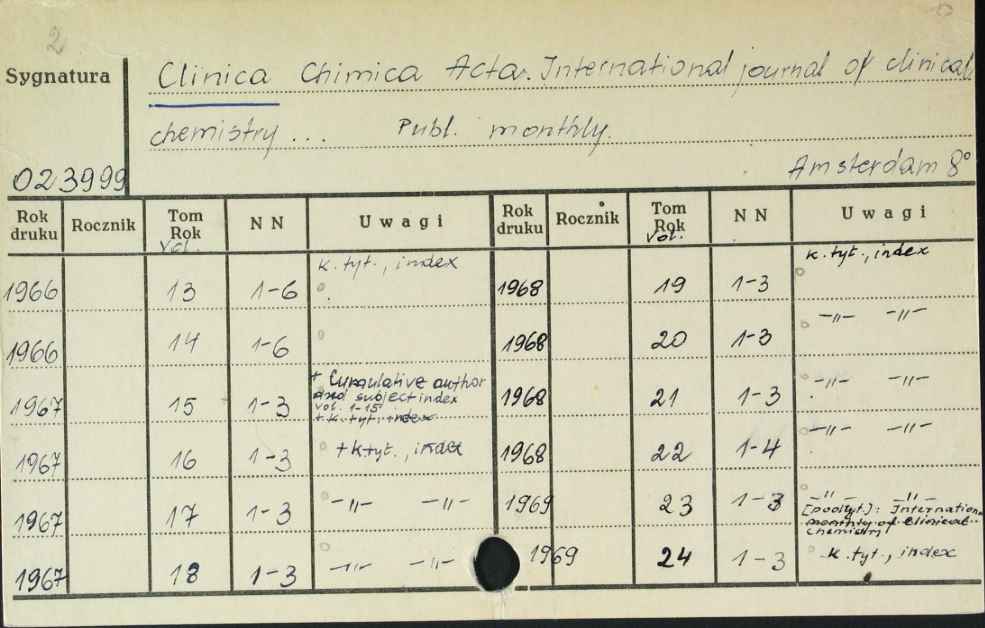 2
Sygnatura
Clinica Chimica Acta. International journal of clinical
chemistry ... Publ. monthly.
023999
Amsterdam 8°
Rok druku Rocznik Tom Rok Vol. NN Uwagi Rok druku Rocznik Tom Rok Vol. NN Uwagi
1966 13 1-6 k. tyt., index 1968 19 1-3 k. tyt., index
1966 14 1-6 1968 20 1-3 -"- -"-
1967 15 1-3 + Cumulative author 1968 21 1-3 -"- -"-
and subject index
vol. 1-15
+ k. tyt. index
1967 16 1-3 + k. tyt., index 1968 22 1-4 -"- -"-
1967 17 1-3 -"- -"- 1969 23 1-3 -"- -"-
[podtyt.]: Internation
monthly of Clinical
Chemistry
1967 18 1-3 -"- -"- 1969 24 1-3 k. tyt., index